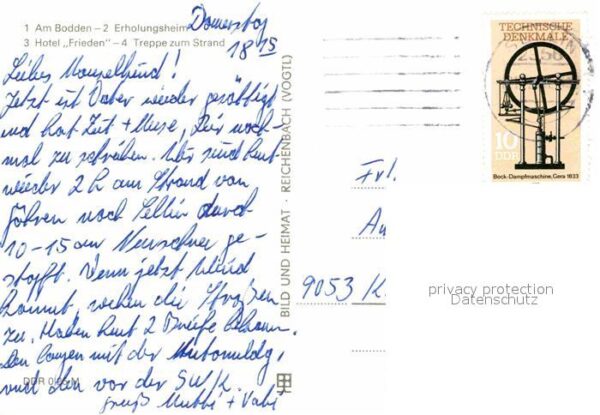 1 Am Bodden – 2 Erholungsheim
3 Hotel „Frieden" – 4 Treppe zum Strand
Donnerstag
18 15
Liebes Mouzelkind!
Jetzt ist Vaber wieder gesättigt
und hat Zeit + Muse, Dir noch-
mal zu schreiben. Wir sind heut
wieder 2 h am Strand von
Göhren nach Sellin durch
10-15 cm Neuschnee ge-
stapft. Wenn jetzt Wind
kommt, wehen die Straßen
zu. Haben heut 2 Briefe bekomm.
Den langen mit der
und den vor der SW/K.
Gruß Mubbi + Vabi
DDR
BILD UND HEIMAT · REICHENBACH (VOGTL)
TECHNISCHE
DENKMALE
10
DDR
Bock-Dampfmaschine, Gera 1833
Frl.
9053 /K.
privacy protection
Datenschutz